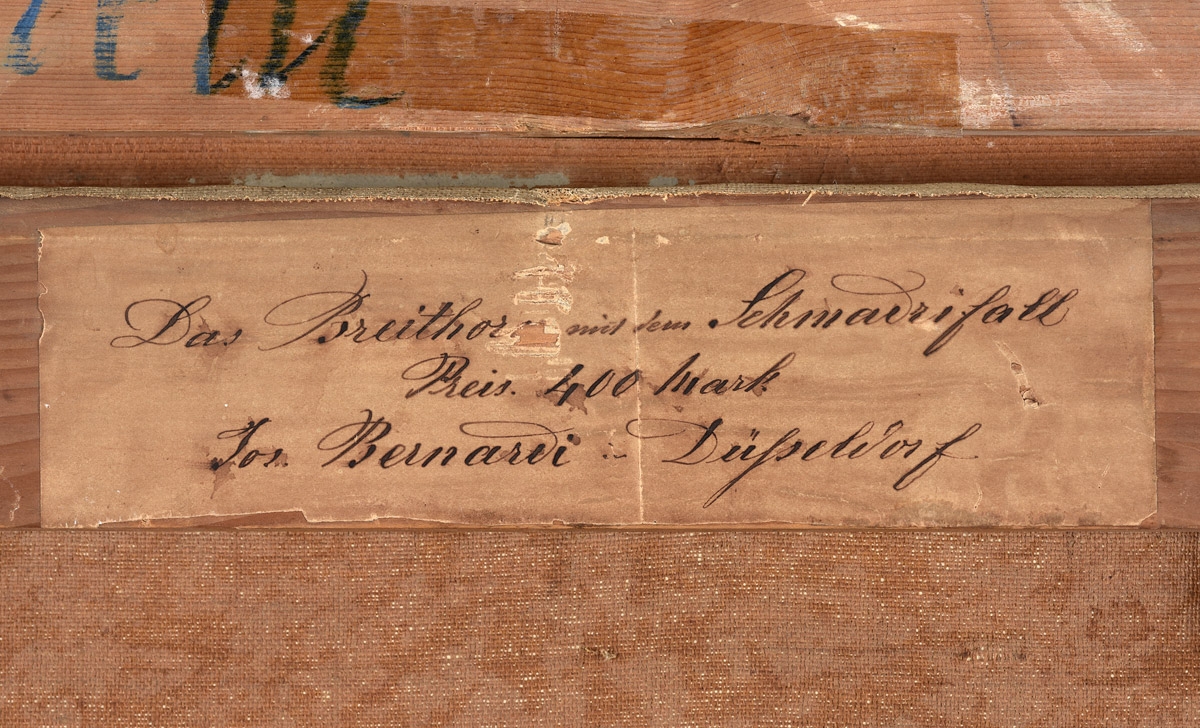 Das Breithorn mit dem Schmadrifall
Preis. 400 Mark
Jos. Bernardi in Düßseldorf